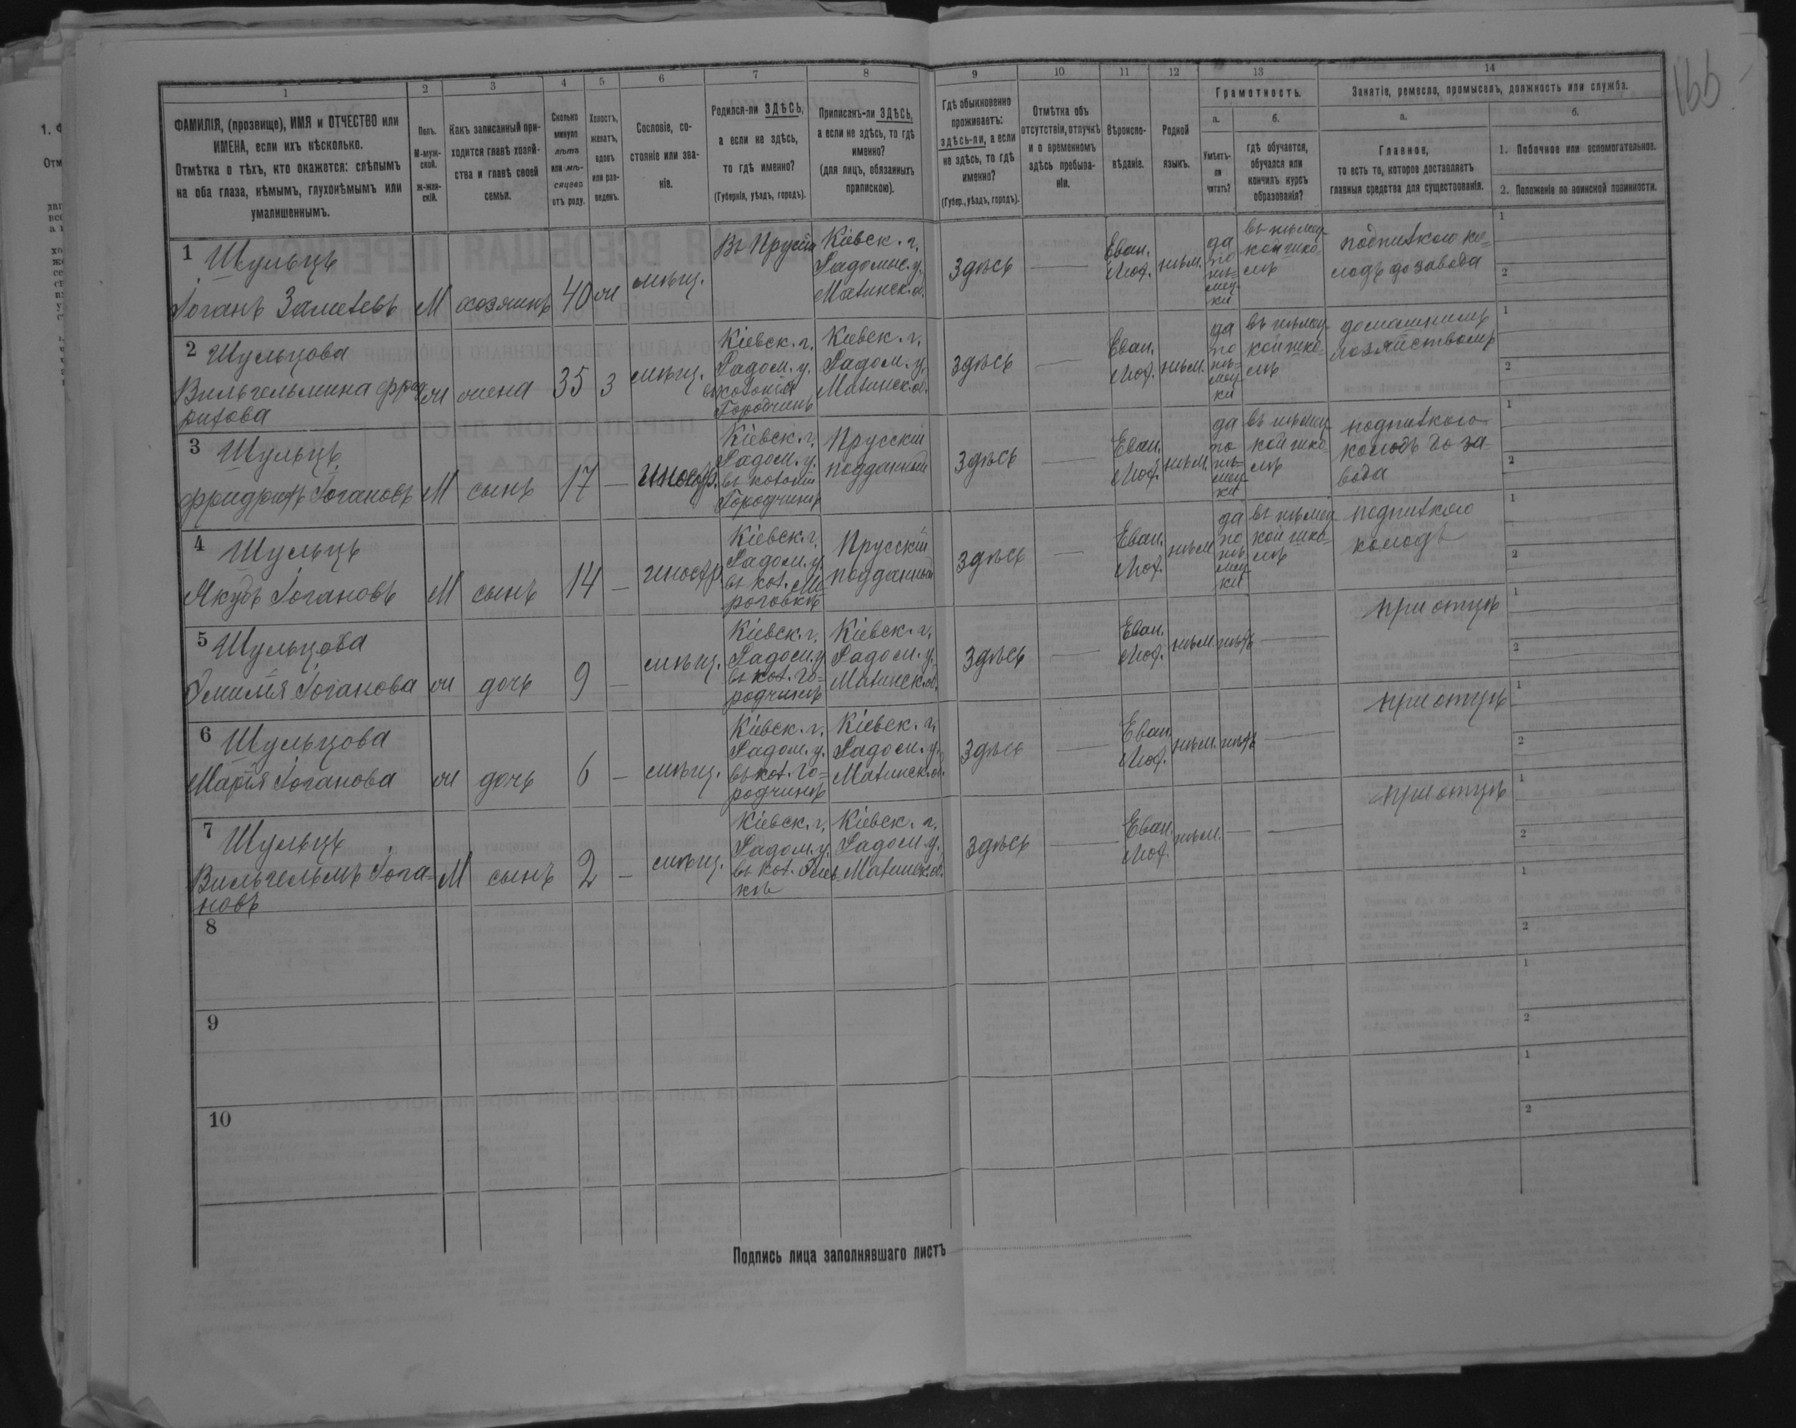 166
1 2 3 4 5 6 7 8 9 10 11 12 13 14
ФАМИЛІЯ, (прозвище), ИМЯ и ОТЧЕСТВО или
ИМЕНА, если ихъ нѣсколько.
Отмѣтка о тѣхъ, кто окажется: слѣпымъ
на оба глаза, нѣмымъ, глухонѣмымъ или
умалишеннымъ.
Полъ.
М-муж-
ской.
Ж-жен-
скій.
Какъ записанный при-
ходится главѣ хозяй-
ства и главѣ своей
семьи.
Сколько
минуло
лѣтъ
или мѣ-
сяцевъ
отъ роду.
Холостъ,
женатъ,
вдовъ
или раз-
веденъ.
Сословіе, со-
стояніе или зва-
ніе.
Родился-ли ЗДѢСЬ,
а если не здѣсь,
то гдѣ именно?
(Губернія, уѣздъ, городъ).
Приписанъ-ли ЗДѢСЬ,
а если не здѣсь, то гдѣ
именно?
(для лицъ, обязанныхъ
припискою).
Гдѣ обыкновенно
проживаетъ:
здѣсь-ли, а если
не здѣсь, то гдѣ
именно?
(Губер., уѣздъ, городъ).
Отмѣтка объ
отсутствіи, отлучкѣ
и о временномъ
здѣсь пребыва-
ніи.
Вѣроиспо-
вѣданіе.
Родной
языкъ.
Грамотность.
а.
Умѣетъ-
ли
читать?
б.
гдѣ обучается,
обучался или
кончилъ курсъ
образованія?
Занятіе, ремесло, промыселъ, должность или служба.
а.
Главное,
то есть то, которое доставляетъ
главныя средства для существованія.
б.
1. Побочное или вспомогательное.
2. Положеніе по воинской повинности.
1 Шульцъ
Іоганъ М хозяинъ 40 ж мѣщ. Въ Пруссіи
Кіевск. г.
Радомыс. у.
Малинск. в.
здѣсь —
Еван.
Лют.
нѣм.
да
по
нѣ-
мец-
ки
въ нѣмец-
кой шко-
лѣ
2 Шульцова
Вильгельмина
М жена 35 з мѣщ.
Кіевск. г.
Радом. у.
въ колоніи
Городчинъ
Кіевск. г.
Радом. у.
Малинск. в.
здѣсь —
Еван.
Лют.
нѣм.
да
по
нѣ-
мец-
ки
въ нѣмец-
кой шко-
лѣ
домашнимъ
хозяйствомъ
3 Шульцъ
Фридрихъ Іогановъ М сынъ 17 — иностр.
Кіевск. г.
Радом. у.
въ колоніи
Городчинѣ
Прусскій
подданный
здѣсь —
Еван.
Лют.
нѣм.
да
по
нѣ-
мец-
ки
въ нѣмец-
кой шко-
лѣ
4 Шульцъ
Якубъ Іогановъ М сынъ 14 — иностр.
Кіевск. г.
Радом. у.
въ кол.
Прусскій
подданный
здѣсь —
Еван.
Лют.
нѣм.
да
по
нѣ-
мец-
ки
въ нѣмец-
кой шко-
лѣ
5 Шульцова
Эмилія Іоганова ж дочь 9 — мѣщ.
Кіевск. г.
Радом. у.
въ кол. Го-
родчинѣ
Кіевск. г.
Радом. у.
Малинск. в.
здѣсь —
Еван.
Лют.
нѣм. нѣтъ —
при отцѣ
6 Шульцова
Марія Іоганова ж дочь 6 — мѣщ.
Кіевск. г.
Радом. у.
въ кол. Го-
родчинѣ
Кіевск. г.
Радом. у.
Малинск. в.
здѣсь —
Еван.
Лют.
нѣм. нѣтъ —
при отцѣ
7 Шульцъ
Вильгельмъ Іога-
новъ
М сынъ 2 — мѣщ.
Кіевск. г.
Радом. у.
въ кол.
Кіевск. г.
Радом. у.
Малинск. в.
здѣсь —
Еван.
Лют.
нѣм. — —
при отцѣ
8
9
10
Подпись лица заполнявшаго листъ